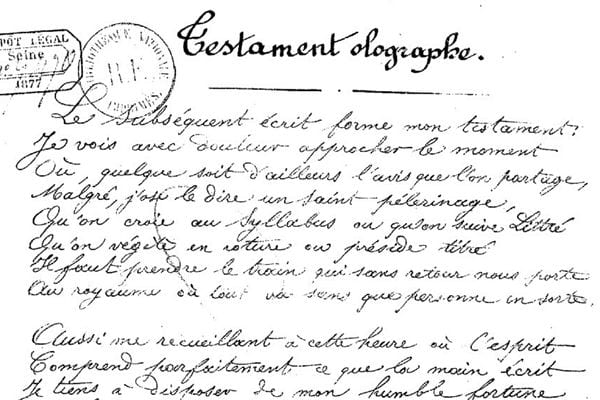 Testament olographe.
DÉPÔT LÉGAL
Seine
1877
BIBLIOTHÈQUE NATIONALE
R.F.
IMPRIMÉS.
Le Subséquent écrit forme mon testament:
Je vois avec douleur approcher le moment
Où, quelque soit d'ailleurs l'avis que l'on partage,
Malgré, j'ose le dire un saint pélerinage,
Qu'on croie au Syllabus ou qu'on suive Littré
Qu'on végète en roture ou préside titré
Il faut prendre le train qui sans retour nous porte
Au royaume où tout va sans que personne en sorte.
Aussi me recueillant à cette heure où l'esprit
Comprend parfaitement ce que la main écrit
Je tiens à disposer de mon humble fortune